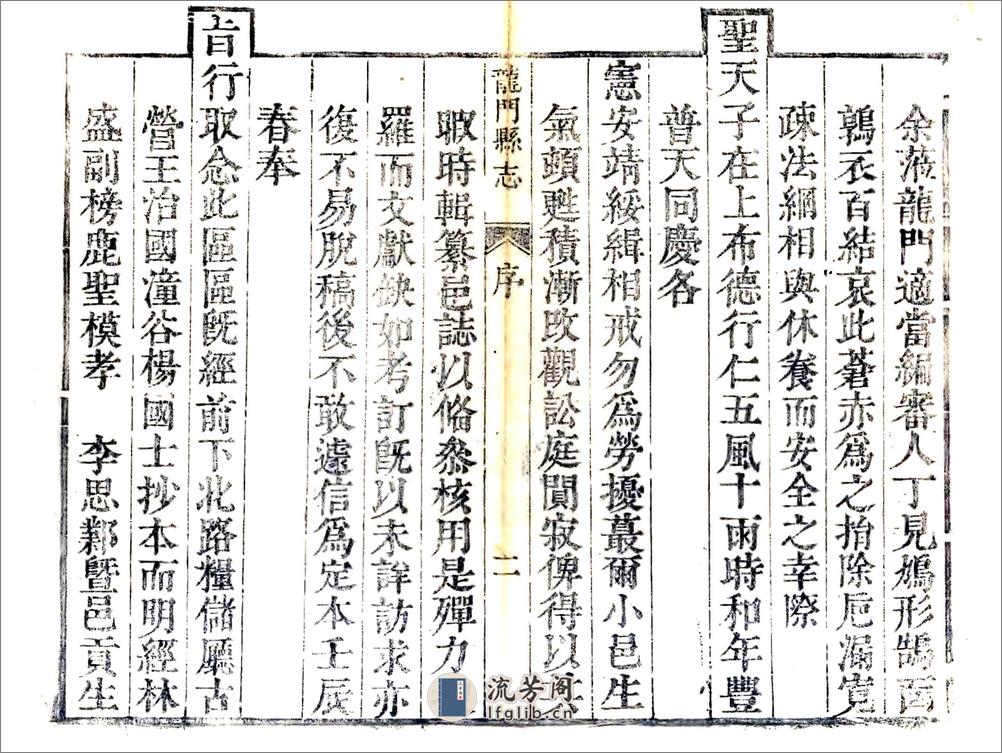 余蒞龍門適當編審人丁見鳩形鵠面
鶉衣百結哀此蒼赤爲之捐除巵漏寬
疎法網相與休養而安全之幸際
聖天子在上布德行仁五風十雨時和年豐
普天同慶各
憲安靖綏緝相戒勿爲勞擾蕞爾小邑生
氣頓甦積漸改觀訟庭閴寂俾得以
龍門縣志 序 二
暇時輯纂邑誌以俻叅核用是殫力
羅而文獻缺如考訂旣以未詳訪求亦
復不易脫稿後不敢遽信爲定本壬辰
春奉
旨行取念此區區旣經前下北路糧儲廳古
營王治國潼谷楊國士抄本而明經林
盛副榜鹿聖模孝 李思鄴暨邑貢生
流芳阁
lfglib.cn